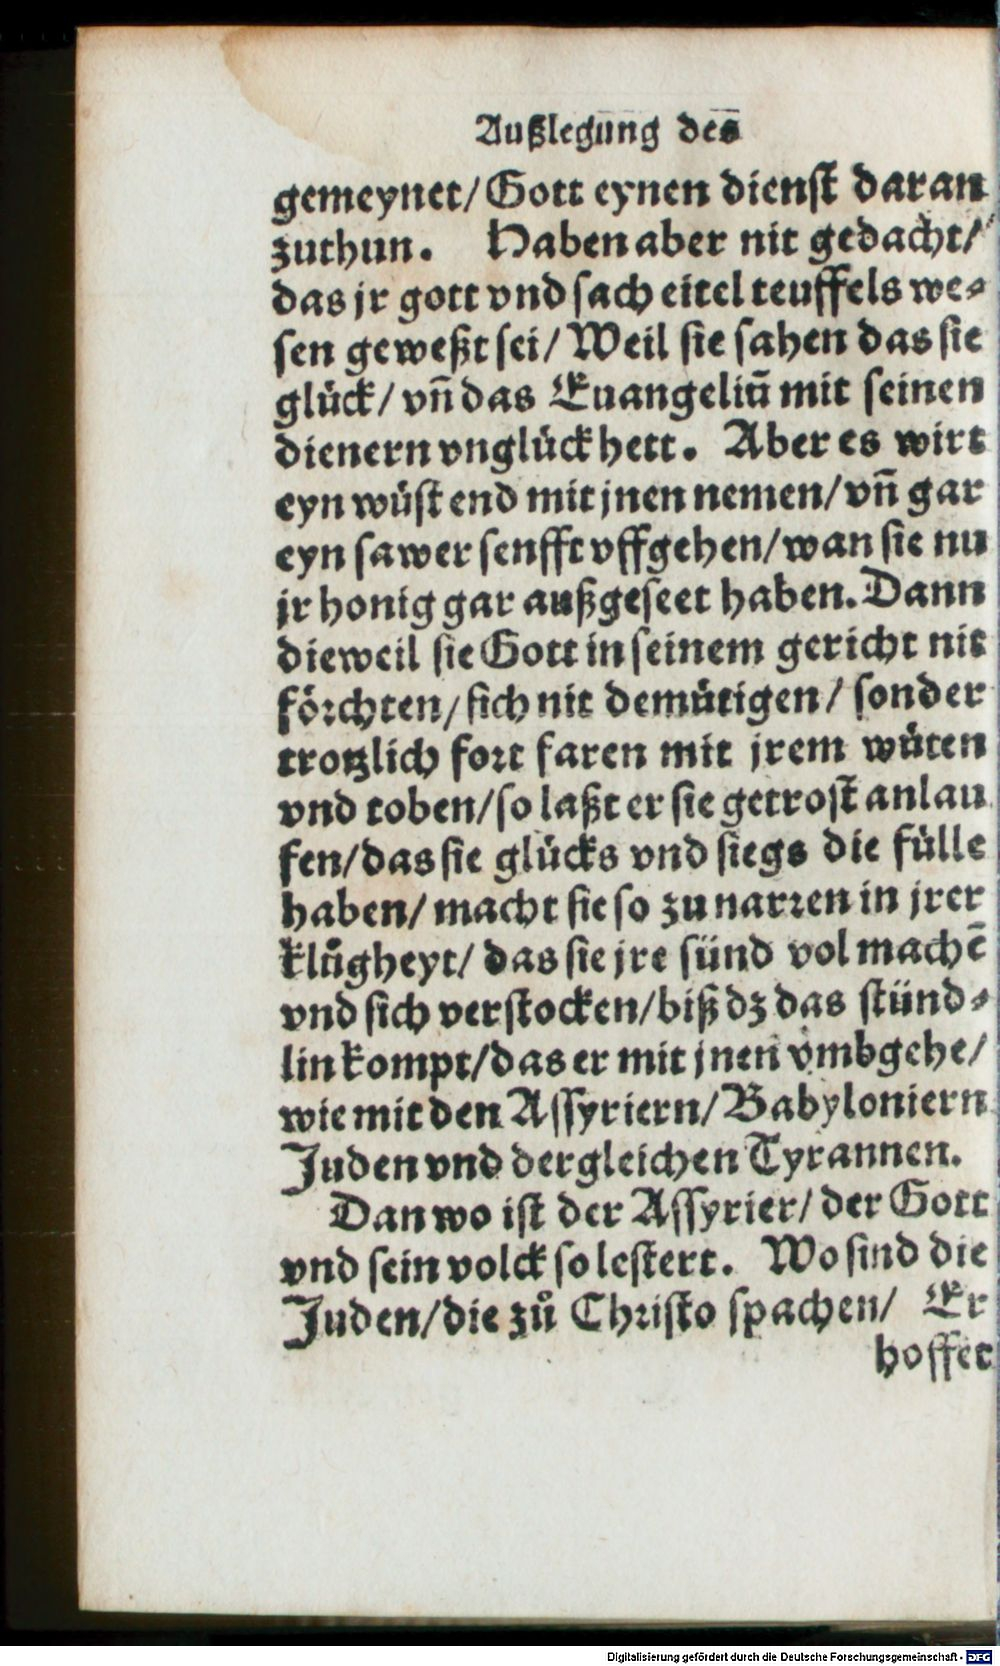 Außlegung des
gemeynet/ Gott eynen dienst daran
zuthun. Haben aber nit gedacht/
das jr gott vnd sach eitel teuffels we⸗
sen geweßt sei/ Weil sie sahen das sie
glück/ vñ das Euangeliũ mit seinen
dienern vnglück hett. Aber es wirt
eyn wüst end mit jnen nemen/ vñ gar
eyn sawer senfft vffgehen/ wan sie nu
jr honig gar außgeseet haben. Dann
dieweil sie Gott in seinem gericht nit
förchten/ sich nit demütigen/ sonder
trotzlich fort faren mit jrem wüten
vnd toben/ so laßt er sie getrost anlau
fen/ das sie glücks vnd siegs die fülle
haben/ macht sie so zu narren in jrer
klůgheyt/ das sie jre sünd vol machē
vnd sich verstocken/ biß dz das stünd⸗
lin kompt/ das er mit jnen vmbgehe/
wie mit den Assyriern/ Babyloniern
Juden vnd dergleichen Tyrannen.
Dan wo ist der Assyrier/ der Gott
vnd sein volck so lestert. Wo sind die
Juden/ die zů Christo spachen/ Er
hoffet
Digitalisierung gefördert durch die Deutsche Forschungsgemeinschaft - DFG